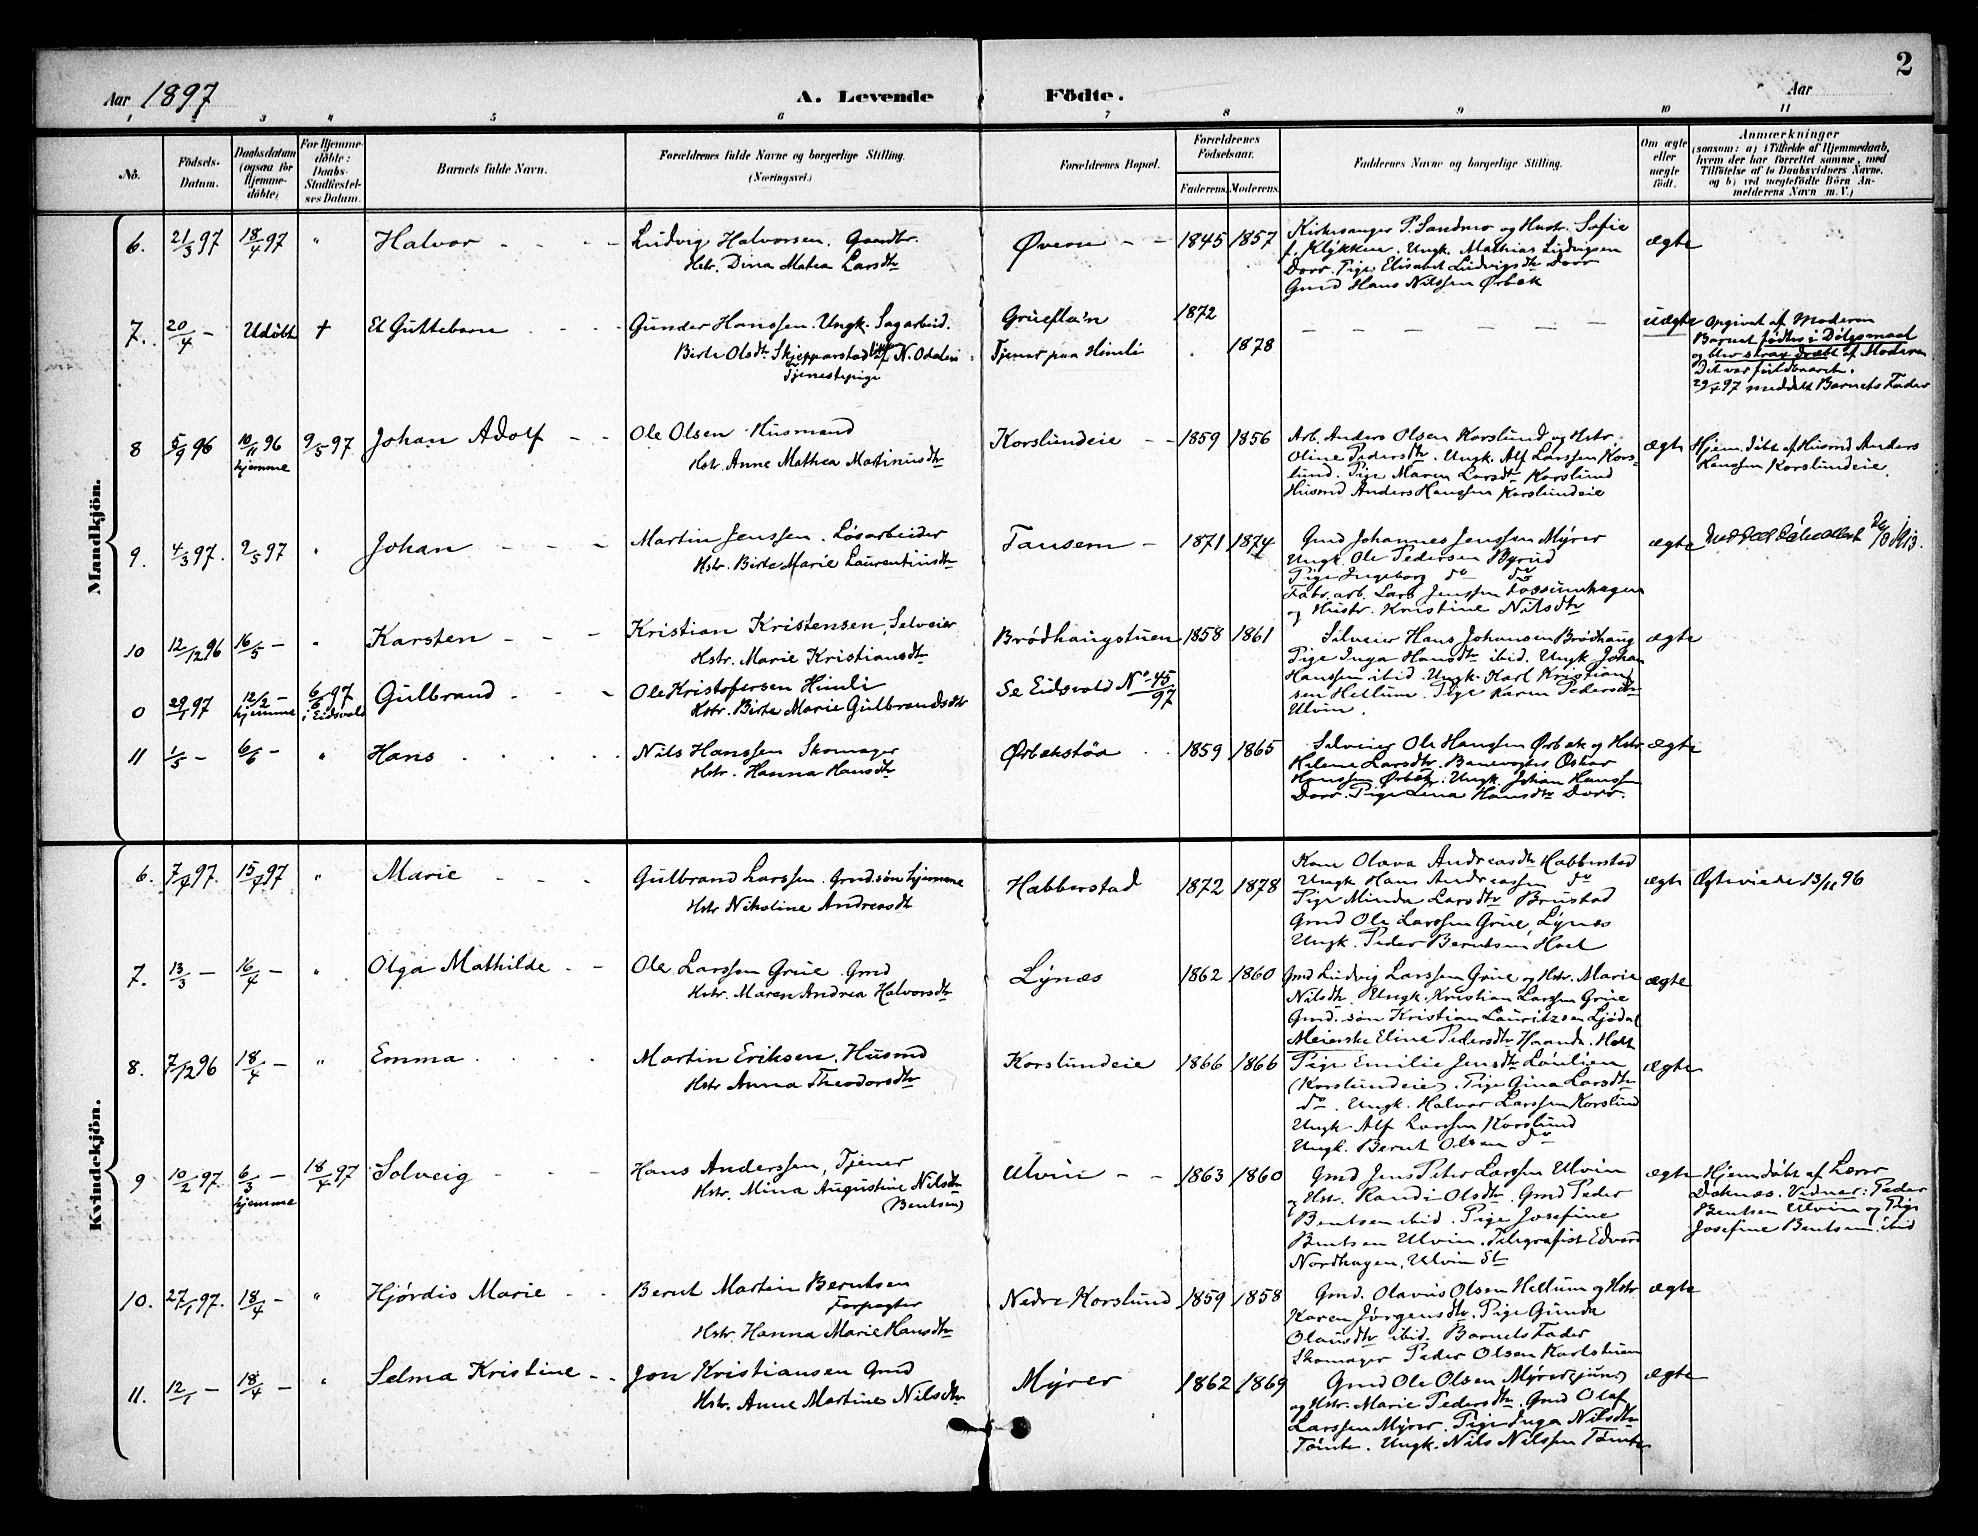 2
Aar 1897
A. Levende Födte.
Aar
1 2 3 4 5 6 7 8 9 10 11
No.
Födsels-
Datum.
Daabsdatum
(ogsaa for
Hjemme-
döbte)
For Hjemme-
döbte:
Daabs-
Stadfæstel-
ses Datum.
Barnets fulde Navn.
Forældrenes fulde Navne og borgerlige Stilling.
(Næringsvei.)
Forældrenes Bopæl.
Forældrenes
Födselsaar.
Faderens. Moderens.
Faddernes Navne og borgerlige Stilling.
Om ægte
eller
uægte
födt.
Anmærkninger
(saasom: a) i Tilfælde af Hjemmedaab,
hvem der har forrettet samme, med
Tilföielse af to Daabsvidners Navne.
og b) ved uegtefödte Börn An-
melderens Navn m. V.)
Mandkjön.
6. 21/3 97 18/4 97 " Halvor
Ludvig Halvorsen. Gaardbr.
Hstr. Dina Mathea Larsdtr
Øveren 1845 1857
Kirkesanger P. Sandmo og Hustr. Sofie
f. Klykken. Ungk. Mathias Ludvigsen
Dorr. Pige Elisabet Ludvigsdtr Dorr
Gmd Hans Nilssen Ørbæk
ægte
7. 20/4 — Udöbt + Et Guttebarn
Gunder Hanssen. Ungk. Sagarbeid.
Birte Olsdtr Skjepparstad af N. Odalen
Tjenestepige
Gruefla'n 1872
Tjener paa Himli 1878
uægte
Opgivet af Moderen
Barnet födtes i Dölgsmaal
og blev strax dræbt af Moderen
Det var fuldbaaret.
meddelt Barnets Fader
8 5/9 96 10/11 96 hjemme 9/5 97 Johan Adolf
Ole Olsen Husmand
Hstr. Anne Mathea Martinusdtr
Korslundeie 1859 1856
Arb. Anders Olsen Korslund og Hstr.
Oline Pedersdtr. Ungk. Alf Larssen Kors-
lund. Pige Maren Larsdtr Korslund
Husmd Anders Hanssen Korslundeie
ægte
Hjem. döbt af Husmd Anders
Hanssen Korslundeie
9. 4/3 97. 9/5 97 " Johan
Martin Jenssen. Løsarbeider
Hstr. Birte Marie Laurentiusdtr
Tausem 1871 1874
Gmd Johannes Jenssen Myrer
Ungk. Ole Pedersen Byrud
Pige Ingeborg do do
Fabr. arb. Lars Jenssen Fossumhagen
og Hustr. Kristine Nilsdtr
ægte
10 12/12 96 16/5 — " Karsten
Kristian Kristensen, Selveier
Hstr. Marie Kristiansdtr
Brødhaugstuen 1858 1861
Selveier Hans Johansen Brødhaug
Pige Inga Hansdtr ibid. Ungk. Johan
Hanssen ibid. Ungk. Karl Kristian-
sen Hellum. Pige Karen Pedersdtr
Ulvin.
ægte
0 29/1 97 12/2 — hjemme 6/6 97 i Eidsvold Gulbrand
Ole Kristofersen Himli
Hstr. Birte Marie Gulbrandsdtr
Se Eidsvold No 45/97
11 1/5 — 6/6 — " Hans
Nils Hanssen Skomager
Hstr. Hanna Hansdtr
Ørbekstøa 1859 1865
Selveier Ole Hanssen Ørbæk og Hstr
Helene Larsdtr. Banevogter Oskar
Hanssen Ørbæk. Ungk. Johan Hanssen
Dorr. Pige Lina Hansdtr Dorr.
ægte
Kvindekjön.
6. 7/4 97. 15/4 97 " Marie
Gulbrand Larssen. Gmd.søn hjemme
Hstr Nikoline Andreasdtr
Habberstad 1872 1878
Kone Olava Andreasdtr Habberstad
Ungk Hans Andreassen do
Pige Minda Larsdtr Brustad
Gmd Ole Larssen Grue, Lynæs
Ungk. Peder Berntsen, Hoel
ægte Ægteviede 13/11 96
7. 13/3 — 16/4 — " Olga Mathilde
Ole Larssen Grue. Gmd
Hstr. Maren Andrea Halvorsdtr
Lynæs 1862 1860
Gmd Ludvig Larssen Grue og Hstr. Marie
Nilsdtr. Ungk. Kristian Larssen Grue
Gmd. søn Kristian Lauritzsen Ljødal
Meierske Eline Pedersdtr Haande. Hoel
ægte
8. 7/12 96 18/4 — " Emma
Martin Eriksen, Husmd
Hstr Anna Theodorsdtr
Korslundeie 1866 1866
Pige Emilie Jensdtr
(Korslundeie). Pige Gina Larsdtr
do. Ungk. Halvor Larssen Korslund
Ungk. Alf Larssen Korslund
Ungk. Bernt Olsen do
ægte
9 10/2 97. 6/3 — hjemme 18/4 97 Solveig
Hans Anderssen, Tjener
Hstr. Mina Augustine Nilsdtr
(Bentsen)
Ulvin 1863 1860
Gmd Jens Peter Larssen Ulvin
og Hstr. Randi Olsdtr. Gmd Peder
Bentsen ibid. Pige Josefine
Bentsen Ulvin. Telegrafist Edvard
Nordhagen, Ulvin St
ægte
Hjemdöbt af Lærer
Doknæs. Vidner: Peder
Bentsen Ulvin og Pige
Josefine Bentsen ibid
10. 27/1 97. 18/4 — " Hjørdis Marie
Bernt Martin Berntsen
Forpagter
Hstr. Hanna Marie Hansdtr
Nedre Korslund 1859 1858
Gmd. Olavus Olsen Hellum og Hstr
Karen Jørgensdtr. Pige Gunda
Olausdtr ibid. Barnets Fader
Skomager Peder Olsen Karlstuen
ægte
11. 12/1 — 18/4 — " Selma Kristine
Jon Kristiansen Gmd
Hstr. Anne Martine Nilsdtr.
Myrer 1862 1869
Gmd Ole Olsen Myrer (jun)
og Hstr. Marie Pedersdtr. Gmd Olaf
Larssen Myrer. Pige Inga Nilsdtr
Tømte. Ungk. Nils Nilssen Tømte
ægte